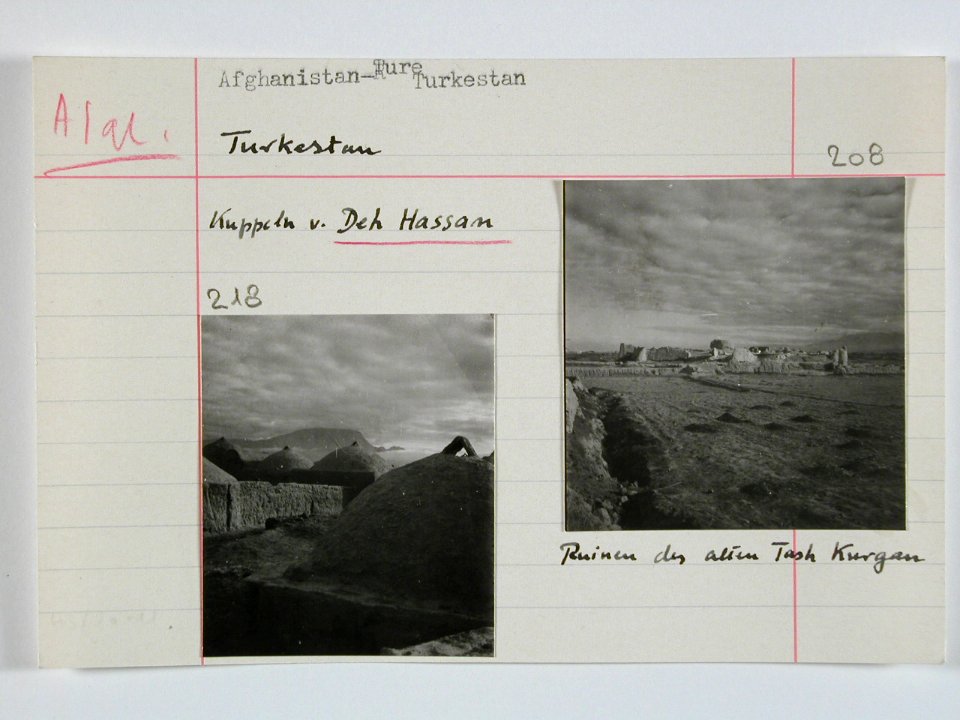 Afghanistan-Ture Turkestan
Afgh.
Turkestan
208
Kuppeln v. Deh Hassan
218
Ruinen des alten Tash Kurgan